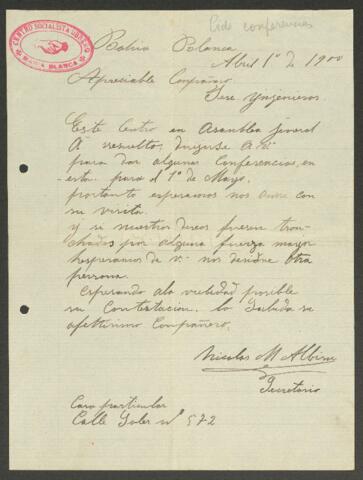 Pide conferencias
CENTRO SOCIALISTA OBRERO
BAHIA BLANCA
Bahia Blanca
Abril 1º de 1900
Apreciable Compañero
Jose Yngenieros.
Este Centro en Asamblea jeneral
A resuelto, dirijirse A V.
para dar algunas Conferencias, en
esta para el 1º de Mayo.
portanto esperamos nos onre con
su visita.
y si nuestros deceos fueren tron-
chados por alguna fuerza mayor
esperamos de V. nos designe Otra
persona.
Esperando ala veledad posible
su Contestacion. lo Saluda su
afettisimo Compañero,
Nicolas M Albino
Secretario
Casa particular
Calle Soler nº 572